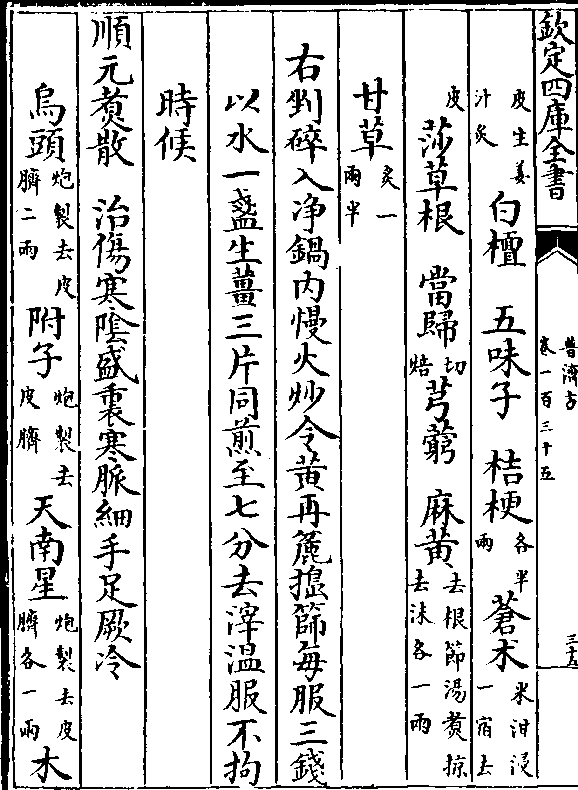 欽定四庫全書
普濟方
卷一百三十五
三十五
皮生姜汁炙 白檀 五味子 桔梗各半兩 蒼朮米泔浸一宿去
皮 莎草根 當歸切焙 芎藭 麻黄去根節湯煑掠去沫各一兩
甘草炙一兩半
右剉碎入净鍋内慢火炒令黄再麄搗篩每服三錢
以水一盞生薑三片同煎至七分去滓温服不拘
時候
順元煑散 治傷寒陰盛裏寒脈細手足厥冷
烏頭炮製去皮臍二兩 附子炮製去皮臍 天南星炮製去皮臍各一兩 木